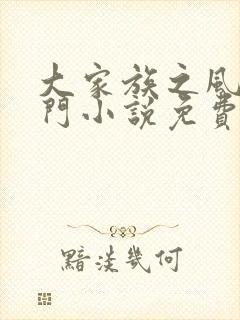 大家族之風
門小說免費
黯淡幾何